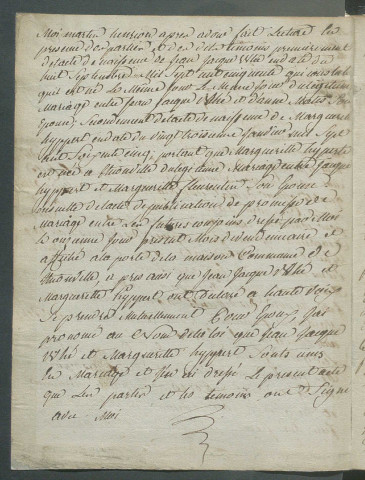 Moi martin henrion apres avoir fait Lecture En
presence des parties et des dits temoins premierement
de lacte de naissance de Jean Jacque
huit Septembre Mil Sept cent cinquante qui constate
qui est né Le Meme Jour du legitime
Mariage entre Jacque et danne
Epoux; Secondement de lacte de naissance de Marguerite
hyppert en date du vingt troisieme Mil Sept
cent Soixante cinq, portant que Marguerite hyppert
est née a du legitime Mariage entre Jacque
hyppert et Marguerite Son Epouse
Ensuite de lacte de publication de promesse de
Mariage entre Les futures conjoins dressé par Moi
le onzieme Jour present Mois et
affiché a la porte de la maison Commune de
apres aussi que Jean Jacque et
Marguerite hyppert ont declaré a haute voix
Se prendre Mutuellement pour Epoux, J'ai
prononcé au Nom de la loi que Jean Jacque
et Marguerite hyppert Sont unis
En Mariage et J'en ai dressé Le present acte
que Les parties et les temoins ont Signé
avec Moi